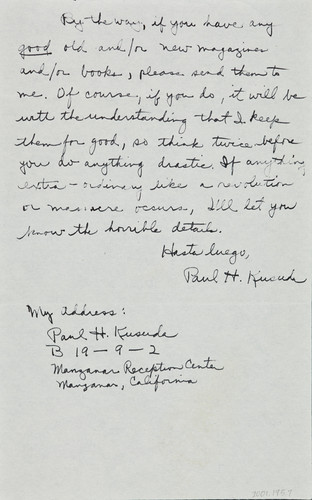 By the way, if you have any
good old and/or new magazines
and/or books, please send them to
me. Of course, if you do, it will be
with the understanding that I keep
them for good, so think twice before
you do anything drastic. If anything
extra-ordinary like a revolution
or massacre occurs, I'll let you
know the horrible details.
Hasta luego,
Paul H. Kusuda
My address:
Paul H. Kusuda
B 19-9-2
Manzanar Reception Center
Manzanar, California
2001.195.7